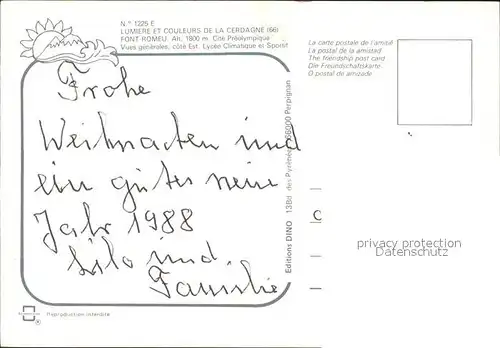 N.° 1225 E
LUMIERE ET COULEURS DE LA CERDAGNE (66)
FONT ROMEU. Alt. 1800 m. Cité Préolympique
Vues générales, côté Est. Lycée Climatique et Sportif
La carte postale de l'amitié
La postal de la amistad
The friendship post card
Die Freundschaftskarte
O postal de amizade
Frohe
Weihnacten und
ein gutes neue
Jahr 1988
Lilo und
Familie
Editions DINO 13Bd. des Pyrénées 66000 Perpignan
C
privacy protection
Datenschutz
Reproduction interdite